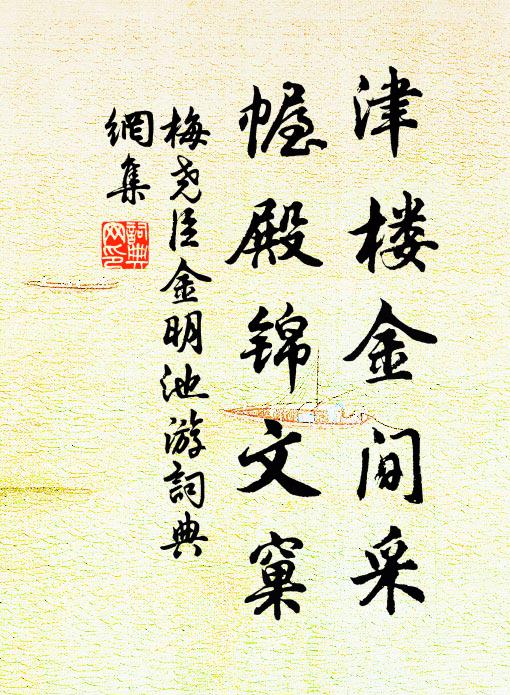 津楼金间采
幄殿锦文窠
梅尧臣金明池游詞典
網集
詞典网印